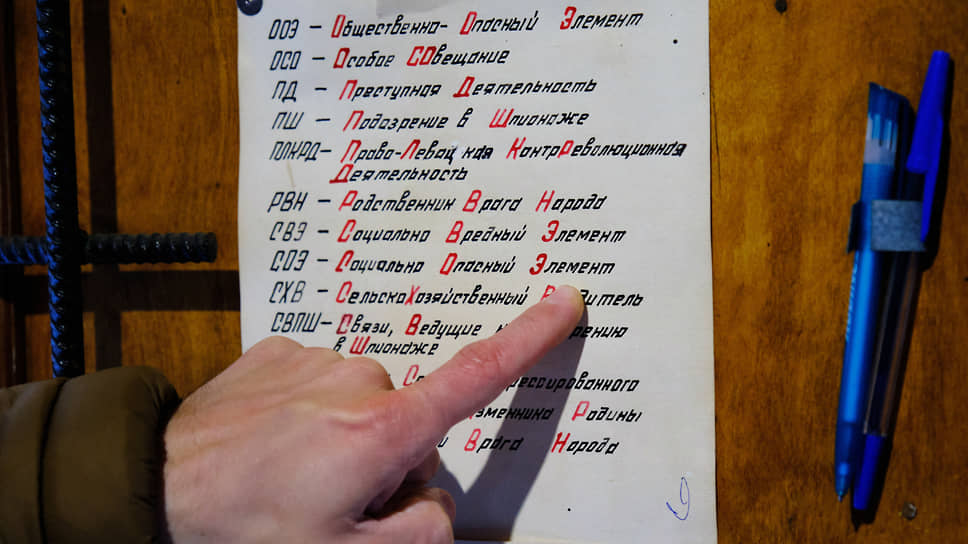 ООЭ – Общественно-Опасный Элемент
ОСО – Особое СОвещание
ПД – Преступная Деятельность
ПШ – Подозрение в Шпионаже
ПЛКРД – Право-Левацкая КонтрРеволюционная
Деятельность
РВН – Родственник Врага Народа
СВЭ – Социально Вредный Элемент
СОЭ – Социально Опасный Элемент
СХВ – СельскоХозяйственный
СВПШ – Связи, Ведущие
в Шпионаже
Родины
Врага Народа